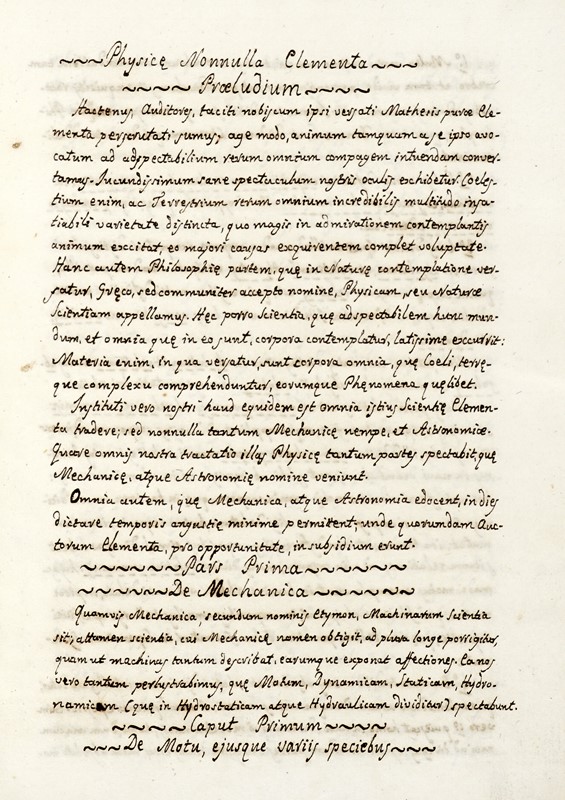 ~~~Physicę Nonnulla Elementa~~~
~~~~ Præludium ~~~~
Hactenus, Auditores, taciti nobiscum ipsi versati Mathesis puræ Ele-
menta perscrutati sumus; age modo, animum tamquam a se ipso avo-
catum ad adspectabilium rerum omnium compagem intuendam conver-
tamus. Jucundissimum sane spectaculum nostris oculis exhibetur. Coeles-
tium enim, ac Terrestrium rerum omnium incredibilis multitudo insa-
tiabili varietate distincta, quo magis in admirationem contemplantis
animum excitat, eo majori causas exquirentem complet voluptate.
Hanc autem Philosophię partem, quę in Naturę contemplatione ver-
satur, Gręco, sed communiter accepto nomine, Physicam, seu Naturæ
Scientiam appellamus. Hęc porro Scientia, quę adspectabilem hunc mun-
dum, et omnia quę in eo sunt, corpora contemplatur, latissime excurrit:
Materia enim, in qua versatur, sunt corpora omnia, quę Coeli, terrę-
que complexu comprehenduntur, eorumque Phęnomena quęlibet.
Instituti vero nostri haud equidem est omnia istius Scientię Elemen-
ta tradere; sed nonnulla tantum Mechanicę nempe, et Astronomiæ.
Quare omnis nostra tractatio illas Physicę tantum partes spectabit, quę
Mechanicę, atque Astronomię nomine veniunt.
Omnia autem, quę Mechanica, atque Astronomia edocent, in dies
dictare temporis angustię minime permittent; unde quorundam Auc-
torum Elementa, pro opportunitate, in subsidium erunt.
~~~~~~Pars Prima~~~~~~
~~~~~~De Mechanica~~~~~~
Quamvis Mechanica secundum nominis Etymon, Machinarum Scientia
sit; attamen scientia, cui Mechanicę nomen obtigit, ad plura longe porrigitur,
quam ut machinas tantum describat, earumque exponat affectiones. Ea nos
vero tantum perlustrabimus, quę Motum, Dynamicam, Staticam, Hydro-
namicam (quę in Hydrostaticam atque Hydraulicam dividitur) spectabunt.
~~~~ Caput Primum ~~~~
~~~De Motu, ejusque variis speciebus~~~